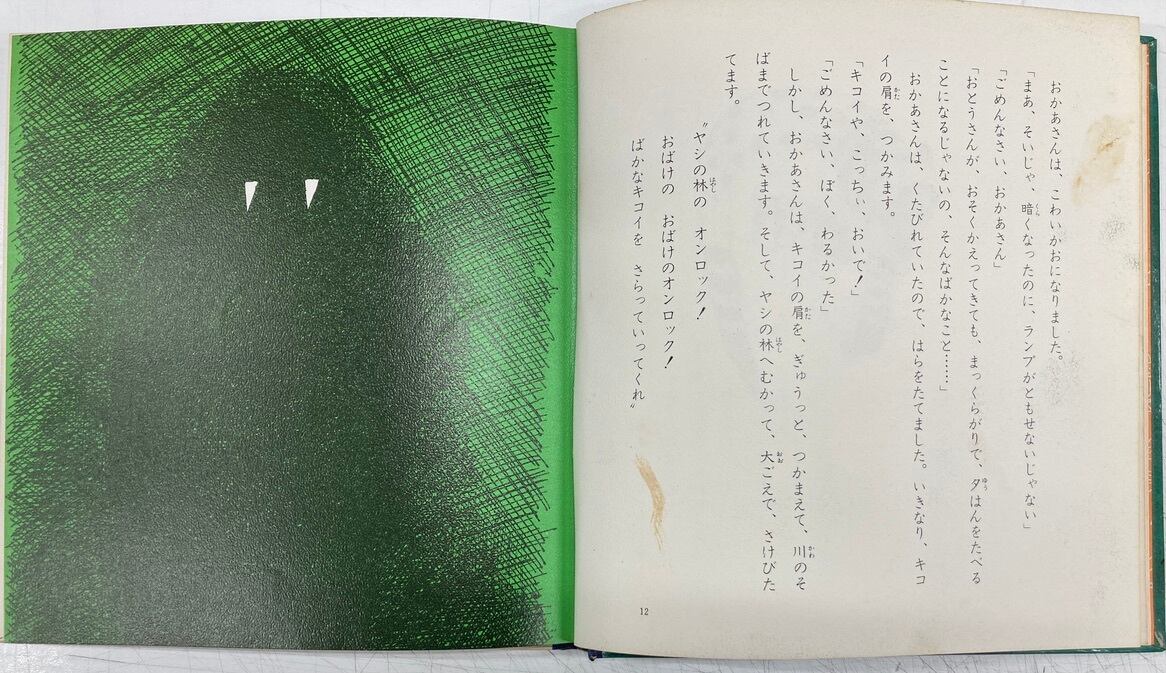 おかあさんは、こわいかおになりました。
「まあ、そいじゃ、暗くなったのに、ランプがともせないじゃない」
「ごめんなさい、おかあさん」
「おとうさんが、おそくかえってきても、まっくらがりで、夕はんをたべる
ことになるじゃないの、そんなばかなこと……」
おかあさんは、くたびれていたので、はらをたてました。いきなり、キコ
イの肩を、つかみます。
「キコイや、こっちぃ、おいで！」
「ごめんなさい、ぼく、わるかった」
しかし、おかあさんは、キコイの肩を、ぎゅうっと、つかまえて、川のそ
ばまでつれていきます。そして、ヤシの林へむかって、大ごえで、さけびた
てます。
〝ヤシの林の　オンロック！
おばけの　おばけのオンロック！
ばかなキコイを　さらっていってくれ〟
12